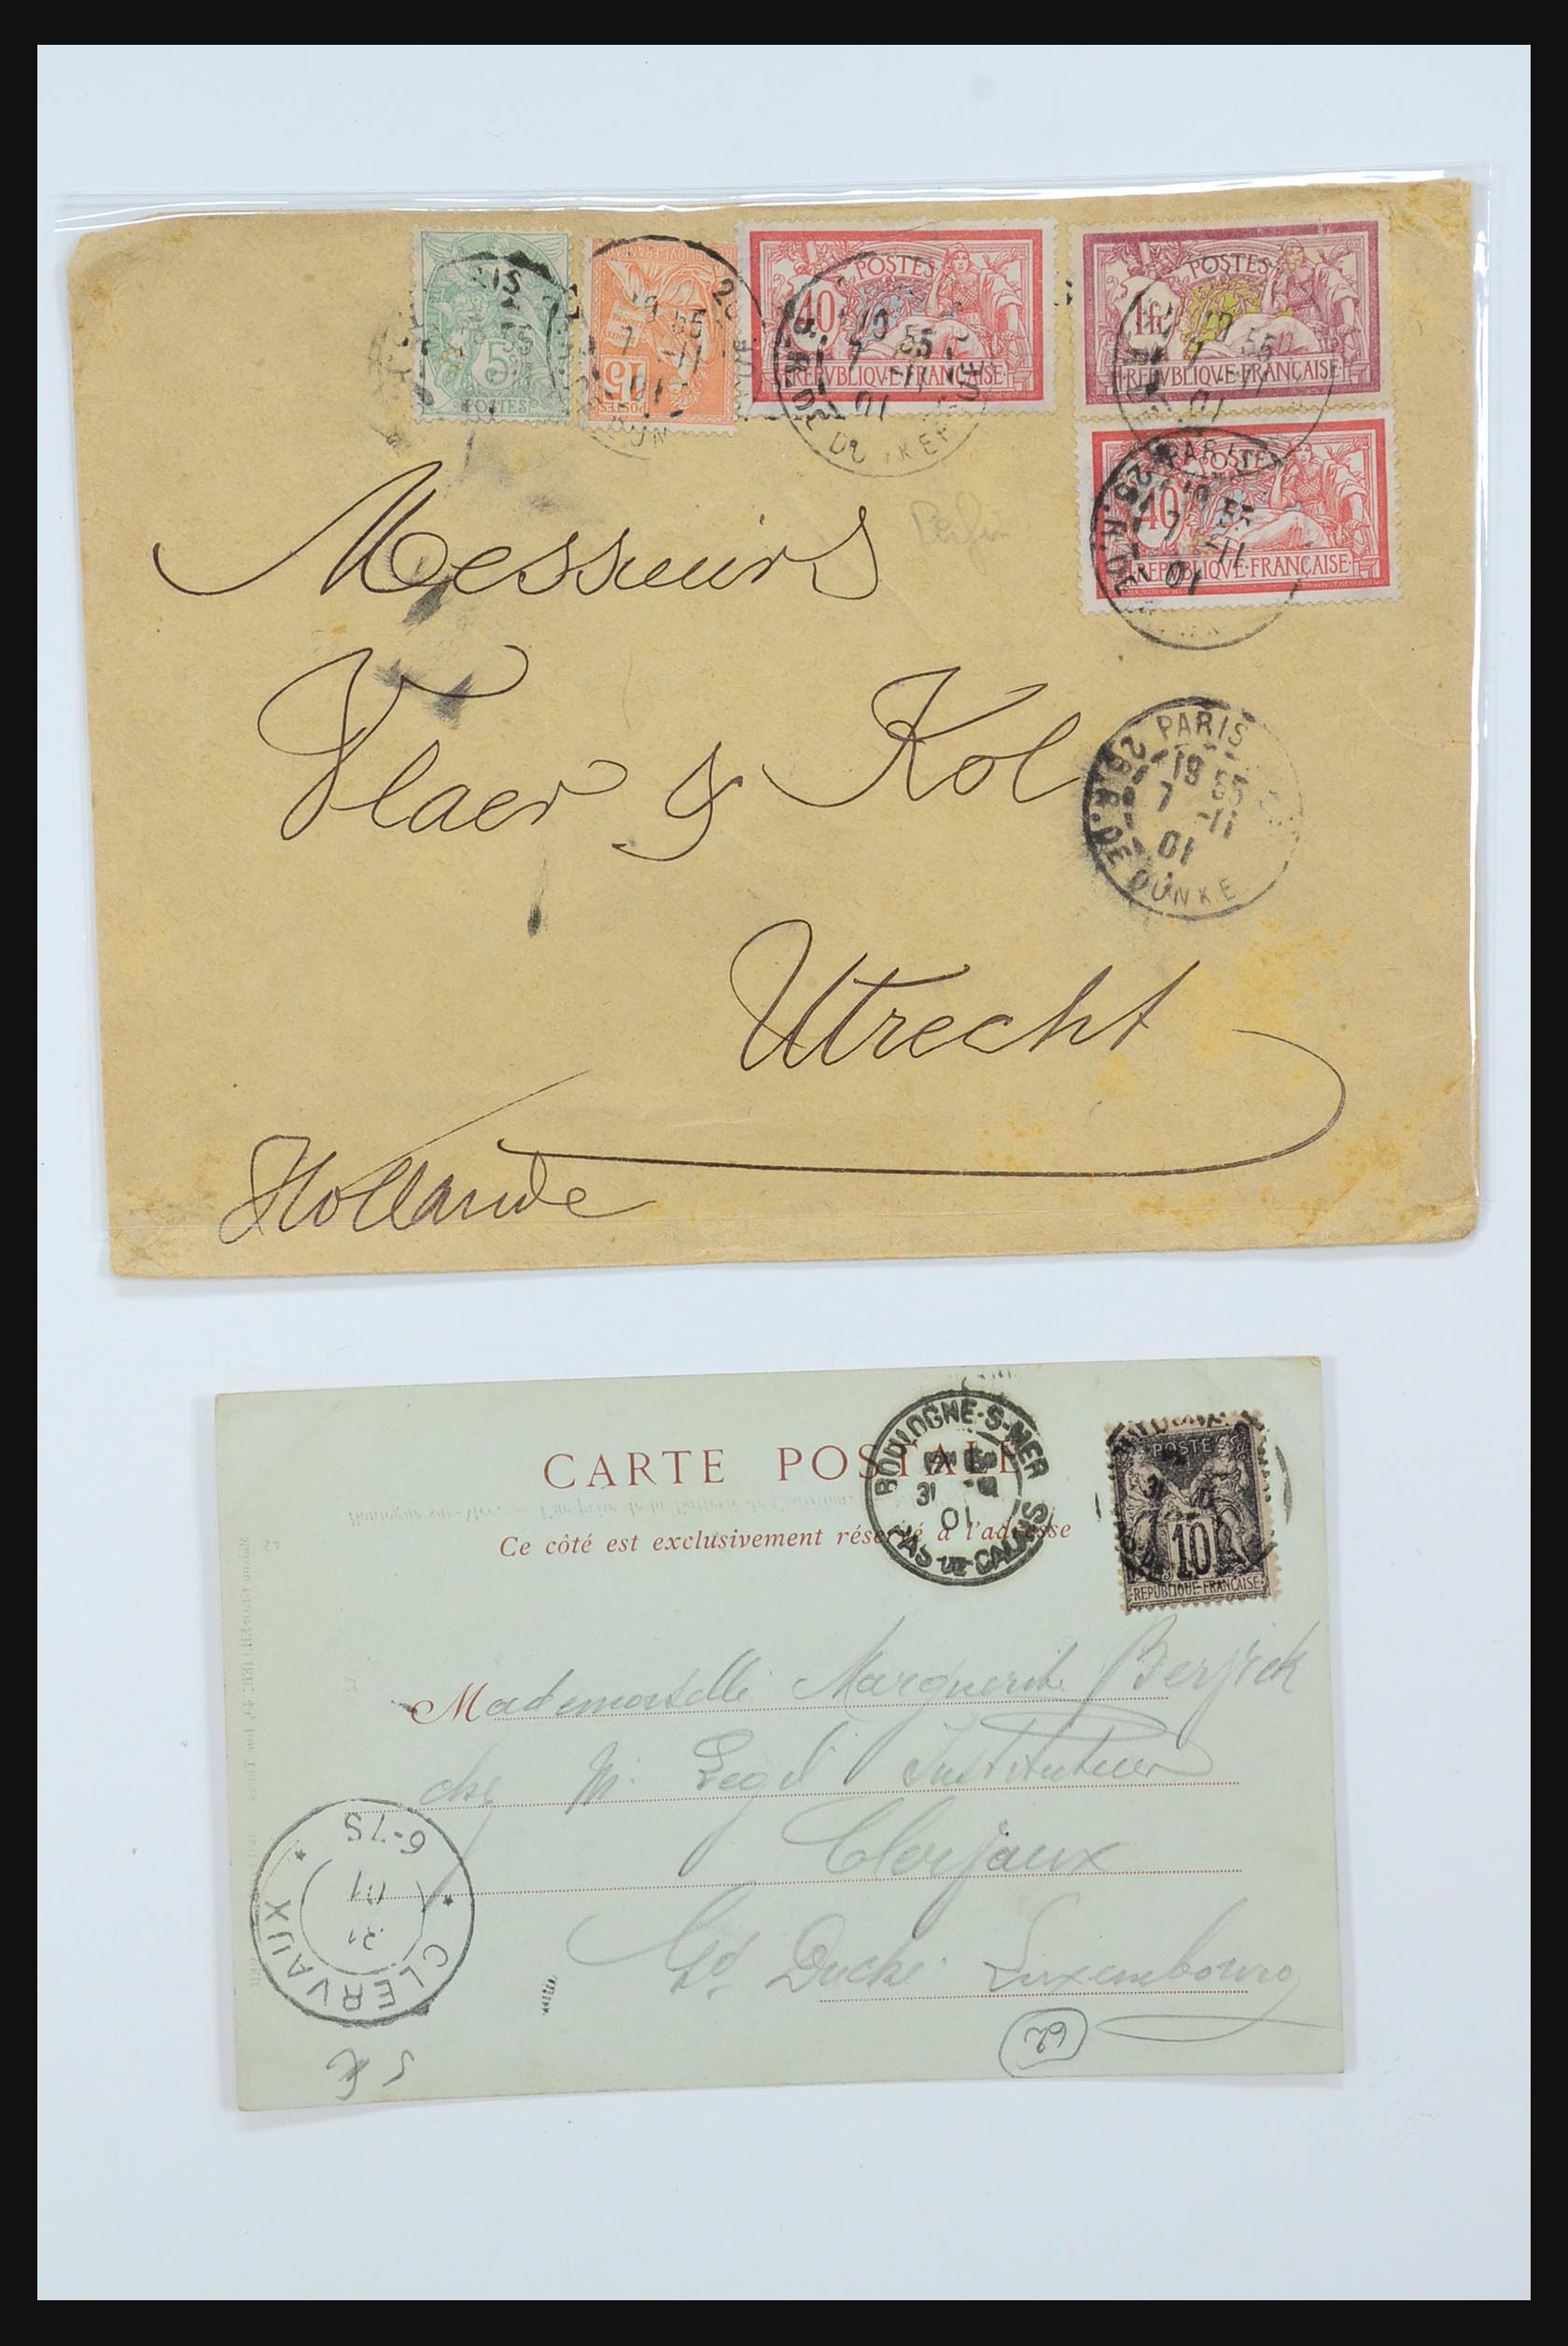 5
POSTES
15
POSTES
POSTES
40
REPVBLIQVE·FRANÇAISE
POSTES
1fc
REPVBLIQVE·FRANÇAISE
POSTES
40
REPVBLIQVE·FRANÇAISE
PARIS
19 55
7 -11
01
R. DE DUNKE
Messieurs
Vlaer & Kol
Utrecht
Hollande
CARTE POSTALE
Ce côté est exclusivement réservé à l'adresse
BOULOGNE-S-MER
31
01
PAS-DE-CALAIS
POSTE
10
REPUBLIQUE-FRANÇAISE
Mademoiselle Marguerite
chez M. Instituteur
Clerjaux
Gd Duché Luxembourg
CLERVAUX
31
01
6-7S
62
5 €